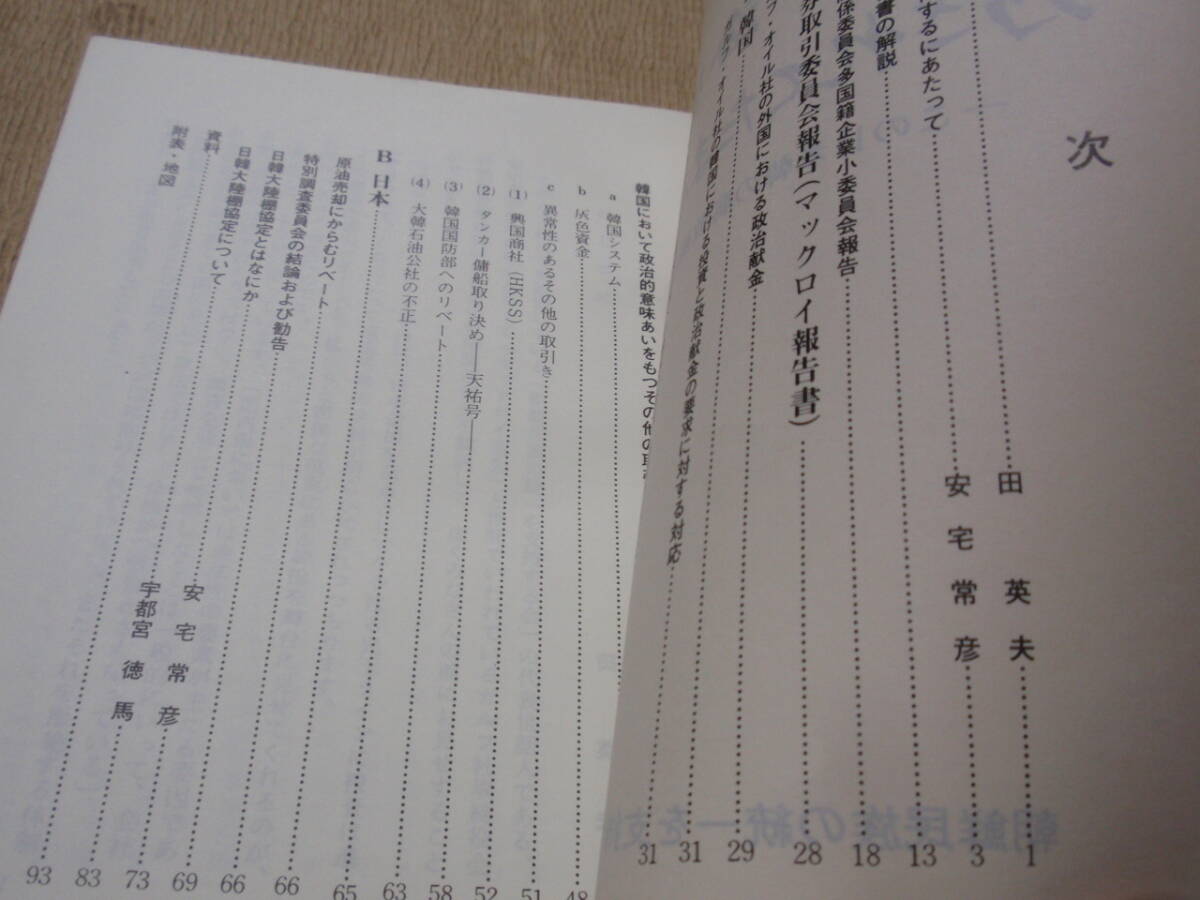 次
田 英 夫 1
するにあたって 安 宅 常 彦 3
書の解説 13
係委員会多国籍企業小委員会報告 18
券取引委員会報告(マックロイ報告書) 28
フ・オイル社の外国における政治献金 29
韓国 31
ガルフ・オイル社の韓国における投資と政治献金の要求に対する対応 31
韓国において政治的意味あいをもつその他の取
a 韓国システム
b 灰色資金 48
c 異常性のあるその他の取引き
(1) 興国商社(HKSS) 51
(2) タンカー傭船取り決め——天祐号—— 52
(3) 韓国国防部へのリベート 58
(4) 大韓石油公社の不正 63
B 日本
原油売却にからむリベート 65
特別調査委員会の結論および勧告 66
日韓大陸棚協定とはなにか 安 宅 常 彦 69
日韓大陸棚協定について 宇都宮 徳 馬 73
資料 83
附表・地図 93